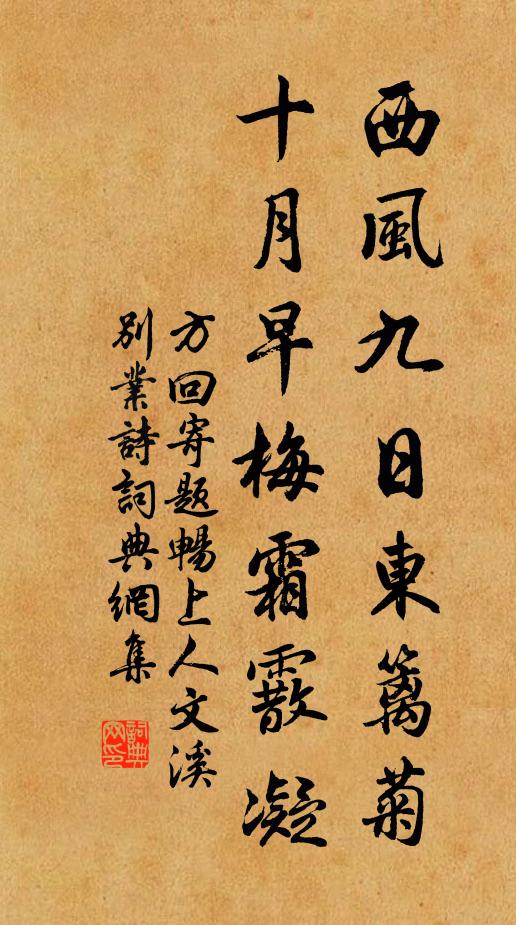 西風九日東籬菊
十月早梅霜霰凝
方回寄题暢上人文溪
別業詩詞典網集
詞典網印